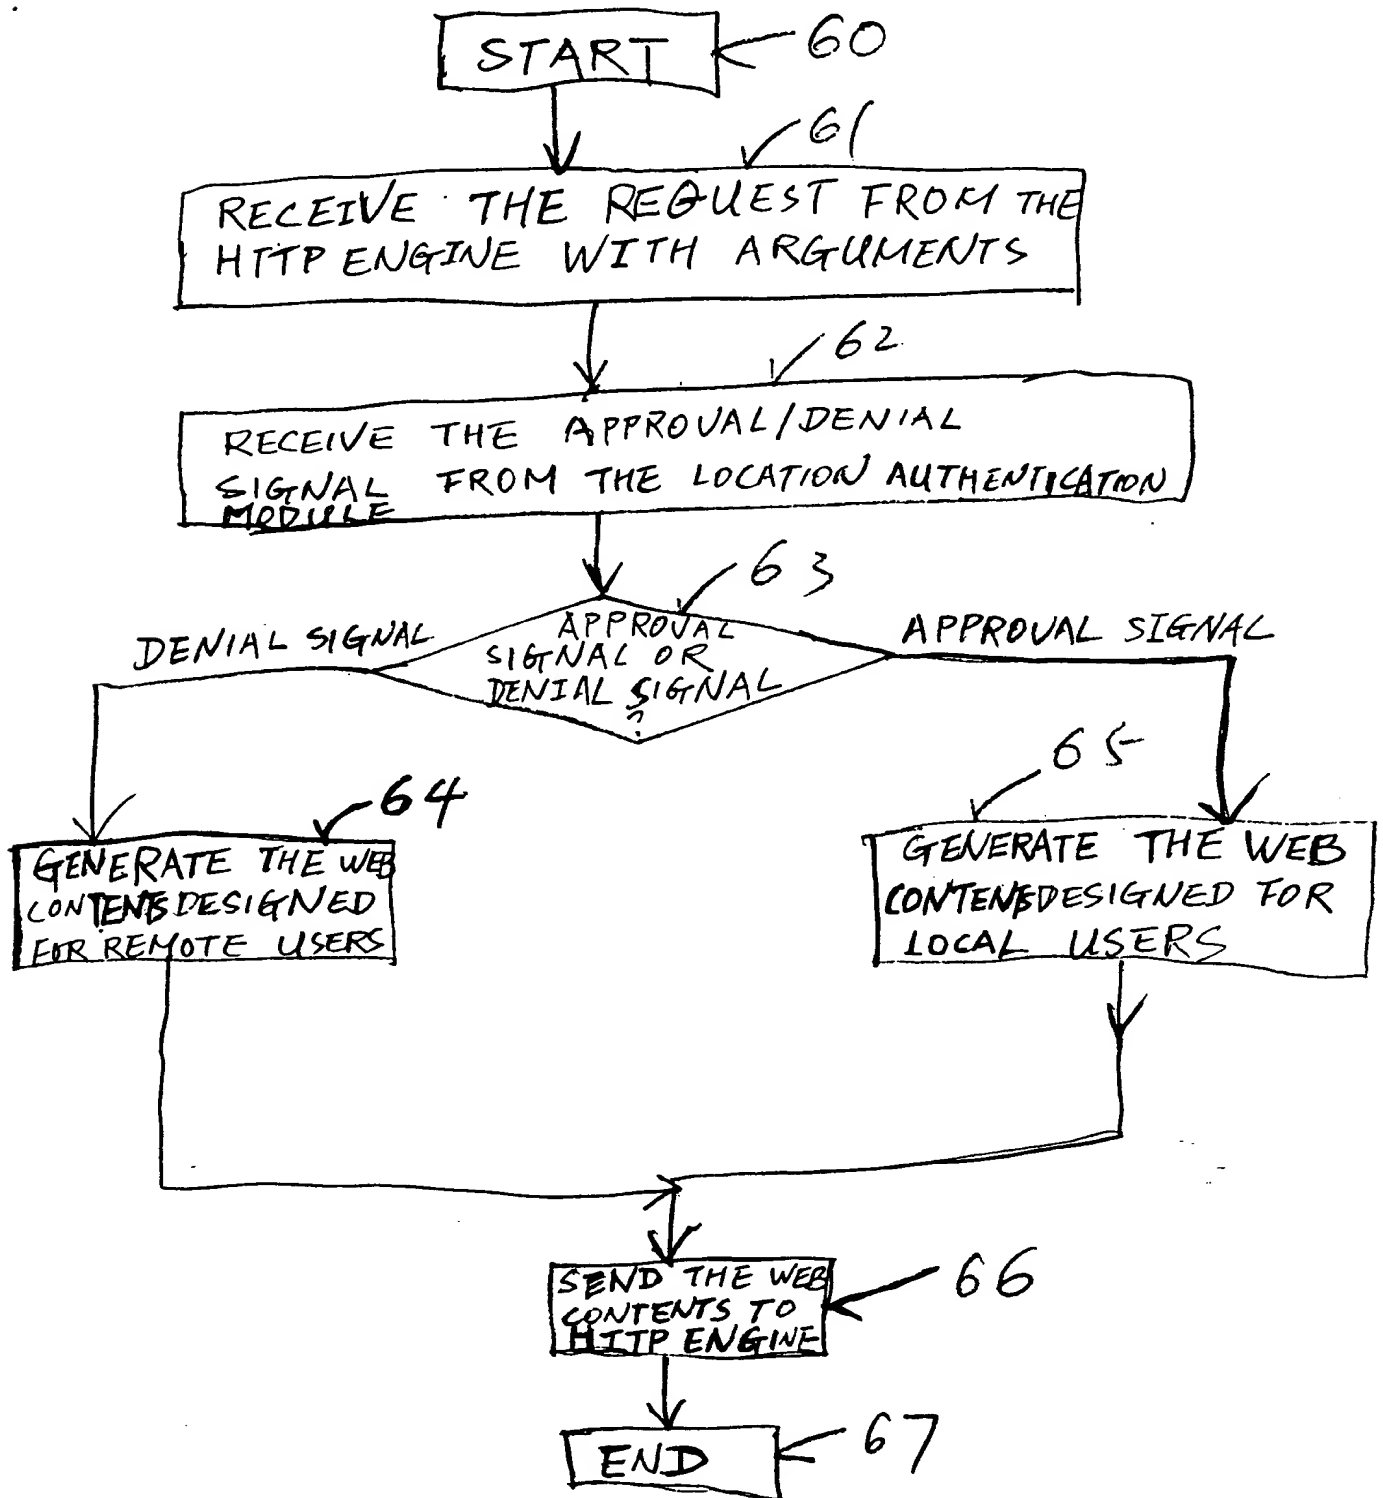 START
60
61
RECEIVE THE REQUEST FROM THE
HTTP ENGINE WITH ARGUMENTS
62
RECEIVE THE APPROVAL/DENIAL
SIGNAL FROM THE LOCATION AUTHENTICATION
MODULE
63
APPROVAL
SIGNAL OR
DENIAL SIGNAL
?
DENIAL SIGNAL
APPROVAL SIGNAL
64
GENERATE THE WEB
CONTENTS DESIGNED
FOR REMOTE USERS
65
GENERATE THE WEB
CONTENTS DESIGNED FOR
LOCAL USERS
66
SEND THE WEB
CONTENTS TO
HTTP ENGINE
END
67